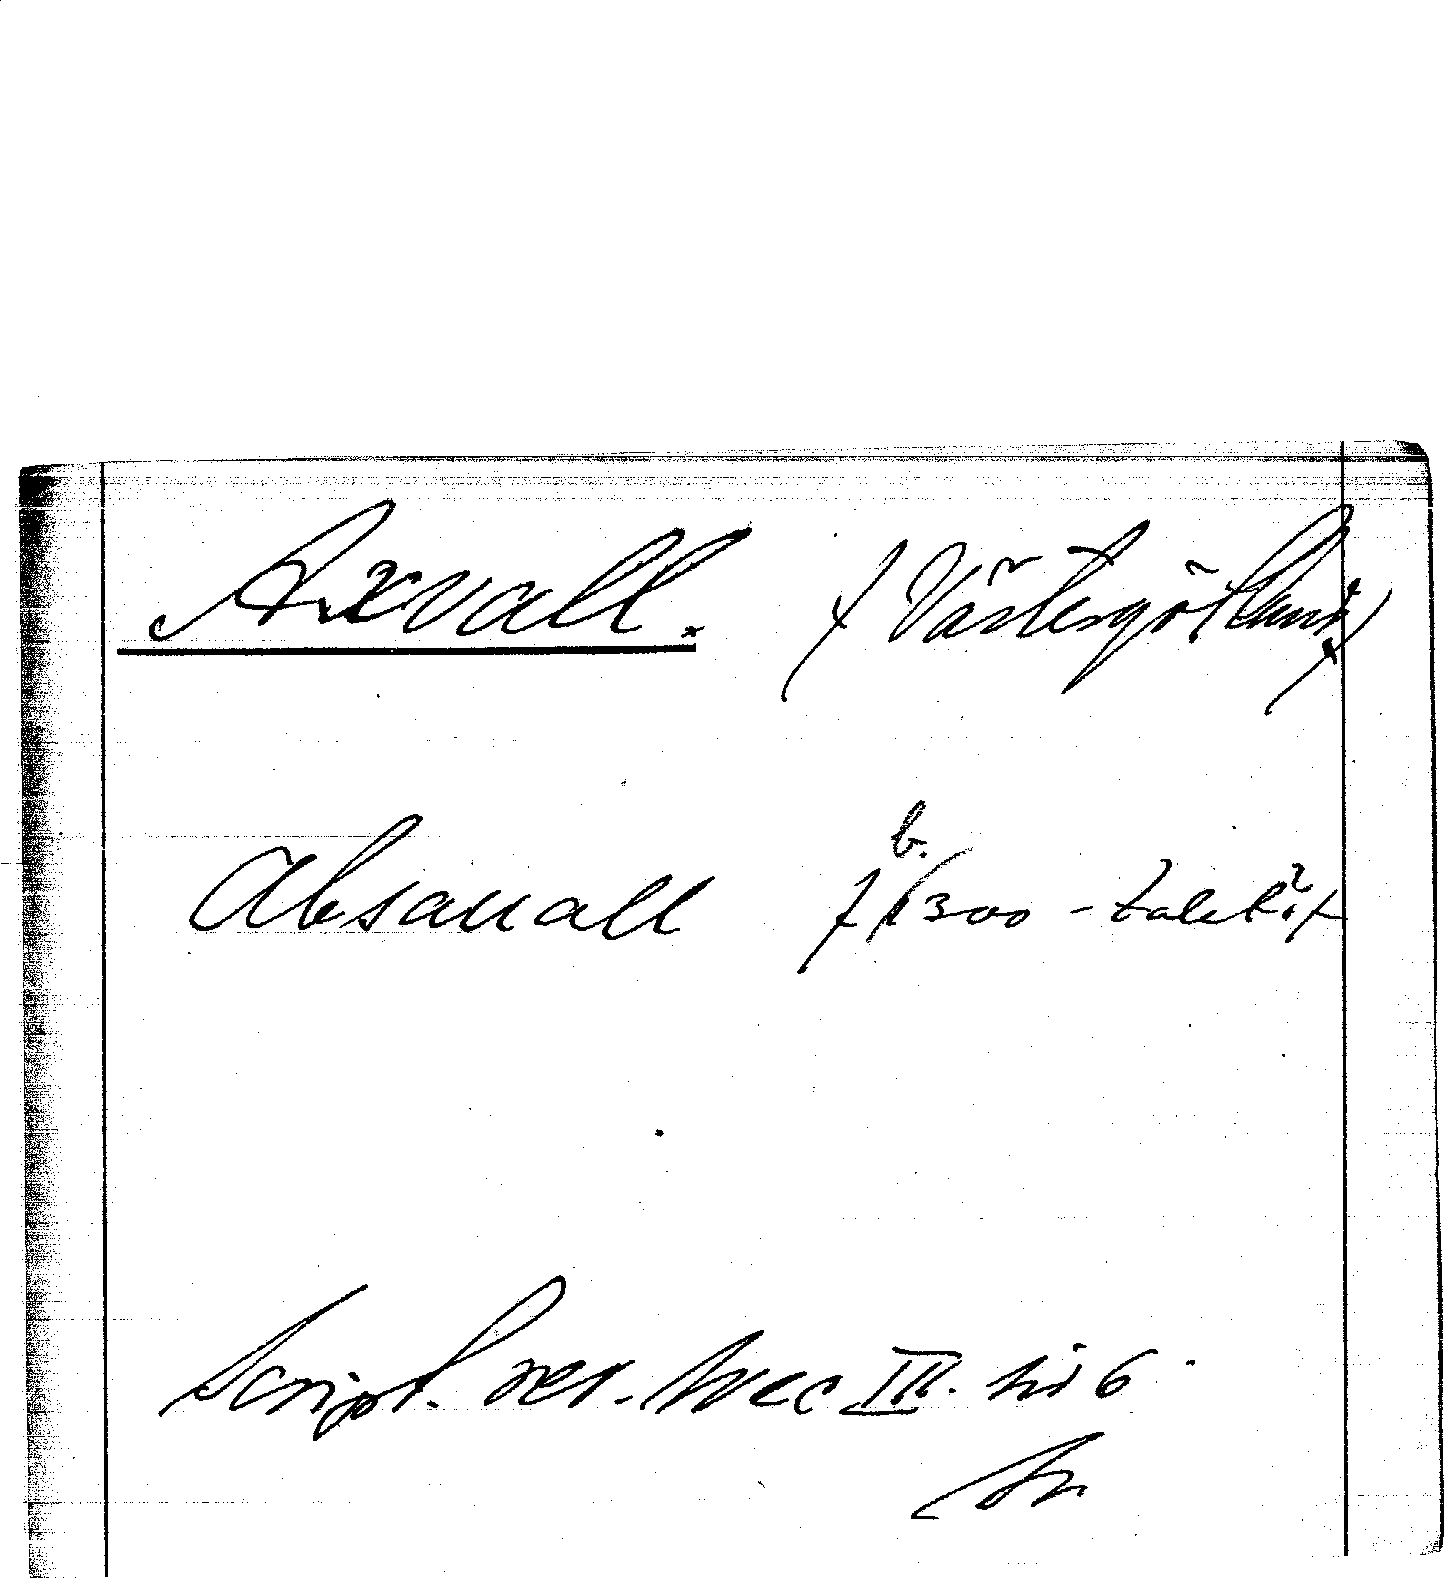 Axvall. (Västergötland)
Absauall (b. 1300-talet?)
Script. rer. svec III. sid 6.